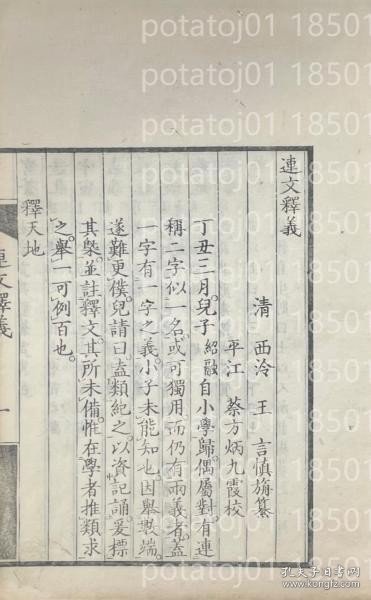 連文釋義
清 西泠 王 言慎旃纂
平江 蔡方炳九霞校
丁丑三月兒子紹融自小學歸偶屬對有連
稱二字似一名或可獨用而仍有兩義者蓋
一字有一字之義小子未能知也因舉數端
遂難更僕兒請曰盍類紀之以資記誦爰標
其槩並註釋文其所未備惟在學者推類求
之舉一可例百也
釋天地
連文釋義
一
potatoj01 18501
potatoj01 18501
potatoj01 18501
potatoj01 18501
potatoj01 18501
potatoj01 18501
potatoj01 18501
孔夫子旧书网